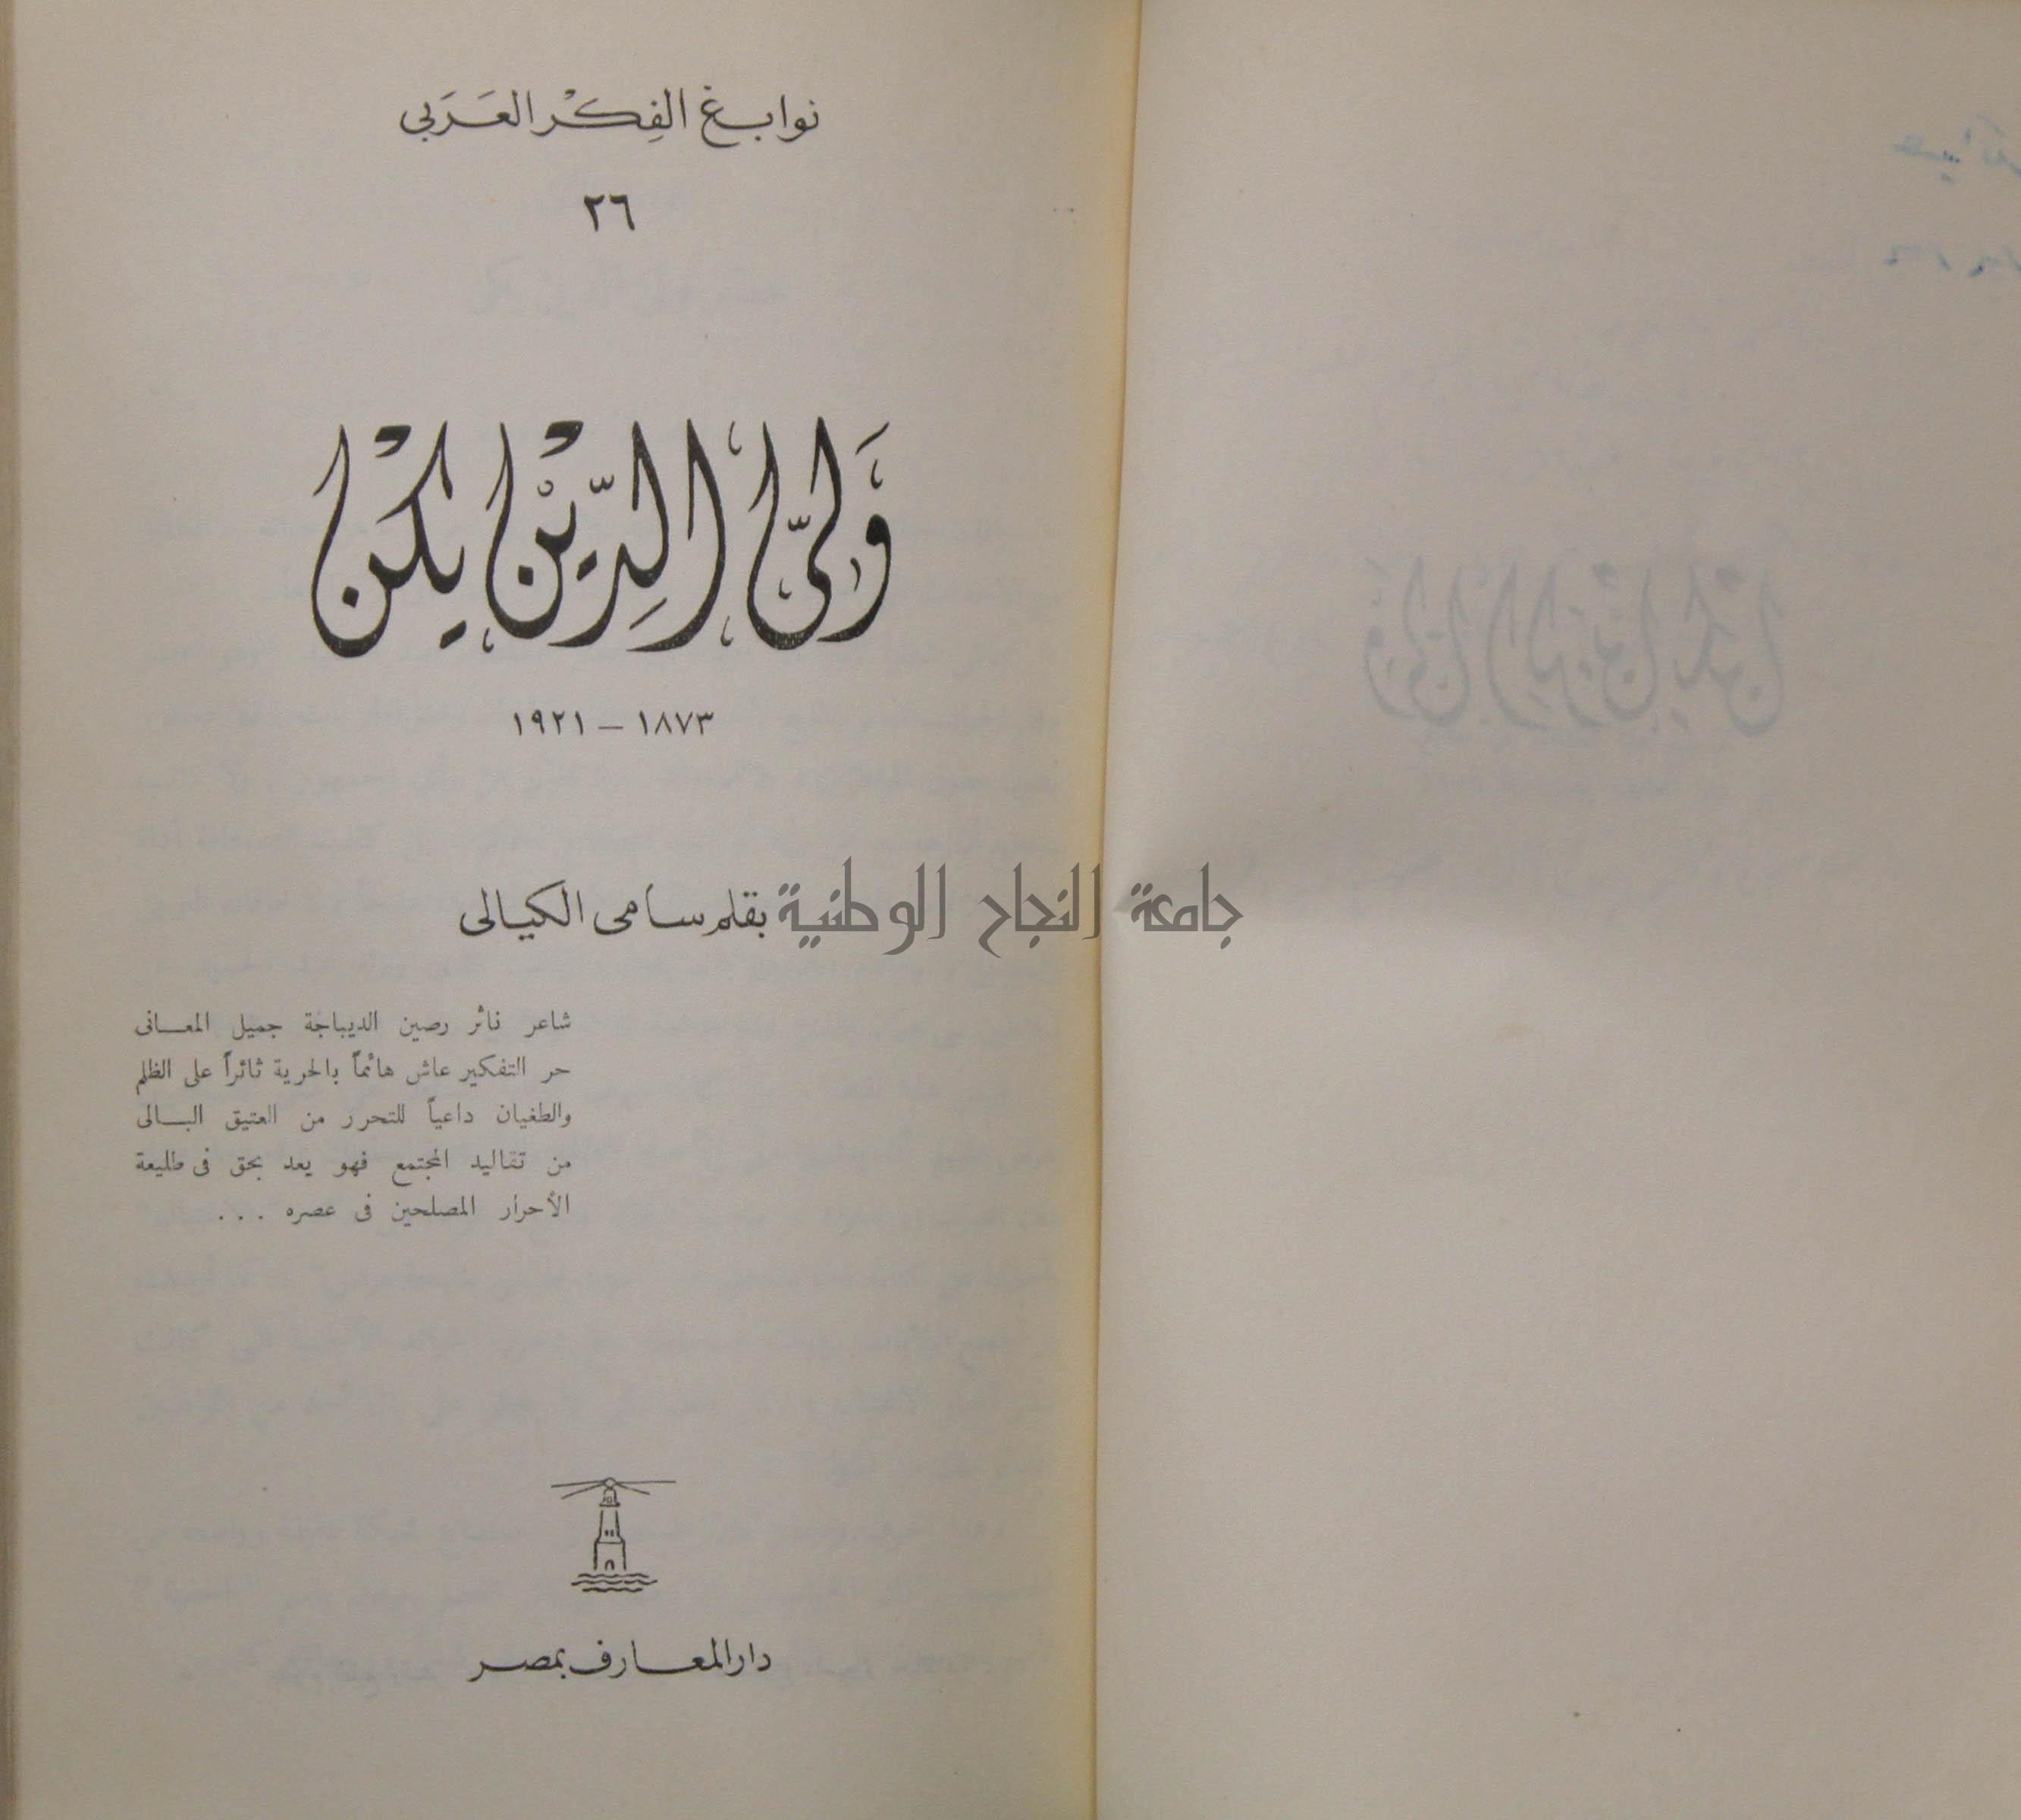 نوابغ الفِكْر العَرَبي
٢٦
وَلىّ الدِّيْن يكَنْ
١٨٧٣ – ١٩٢١
بقلم سامى الكيالى
جامعة النجاح الوطنية
شاعر ناثر رصين الديباجة جميل المعانى
حر التفكير عاش هائماً بالحرية ثائراً على الظلم
والطغيان داعياً للتحرر من العتيق البالى
من تقاليد المجتمع فهو يعد بحق فى طليعة
الأحرار المصلحين فى عصره ...
دار المعارف بمصر